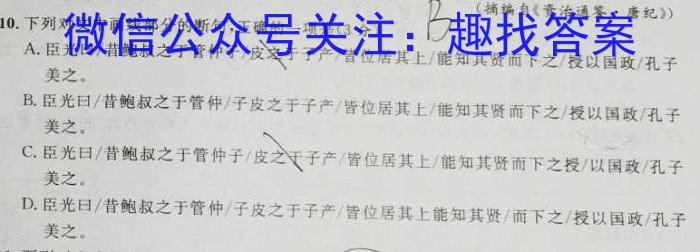 (摘编自《资治通鉴·唐纪》)
B
10.下列对文中画线部分的断句,正确的一项是(3分)
微信公众号关注：趣找答案
A.臣光曰/昔鲍叔之于管仲/子皮之于子产/皆位居其上/能知其贤而下之/授以国政/孔子
美之。
B.臣光曰/昔鲍叔之于管仲/子皮之于子产/皆位居其上/能知其贤而下之/授以国政/孔子
美之。
C.臣光曰/昔鲍叔之于管仲子/皮之于子产/皆位居其上/能知其贤而下之授/以国政/孔子
美之。
D.臣光曰/昔鲍叔之于管仲/子皮之于子产/皆位居其上/能知其贤/而下之/授以国政/孔子
美之。